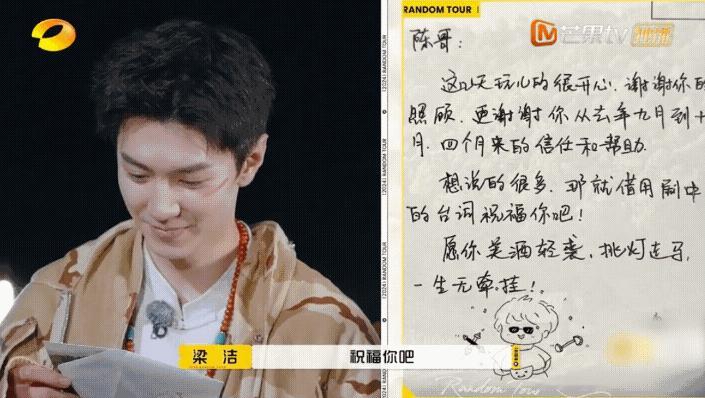 RANDOM TOUR
芒果tv
陈哥：
这几天玩儿的很开心，谢谢你的
照顾，更谢谢你从去年九月到十
月，四个月来的信任和帮助.
想说的很多，那就借用剧中
的台词祝福你吧！
愿你美酒轻裘，挑灯走马，
一生无牵挂！
梁洁
祝福你吧
Random Tour
(2024) RANDOM TOUR
(2024) RANDOM TOUR